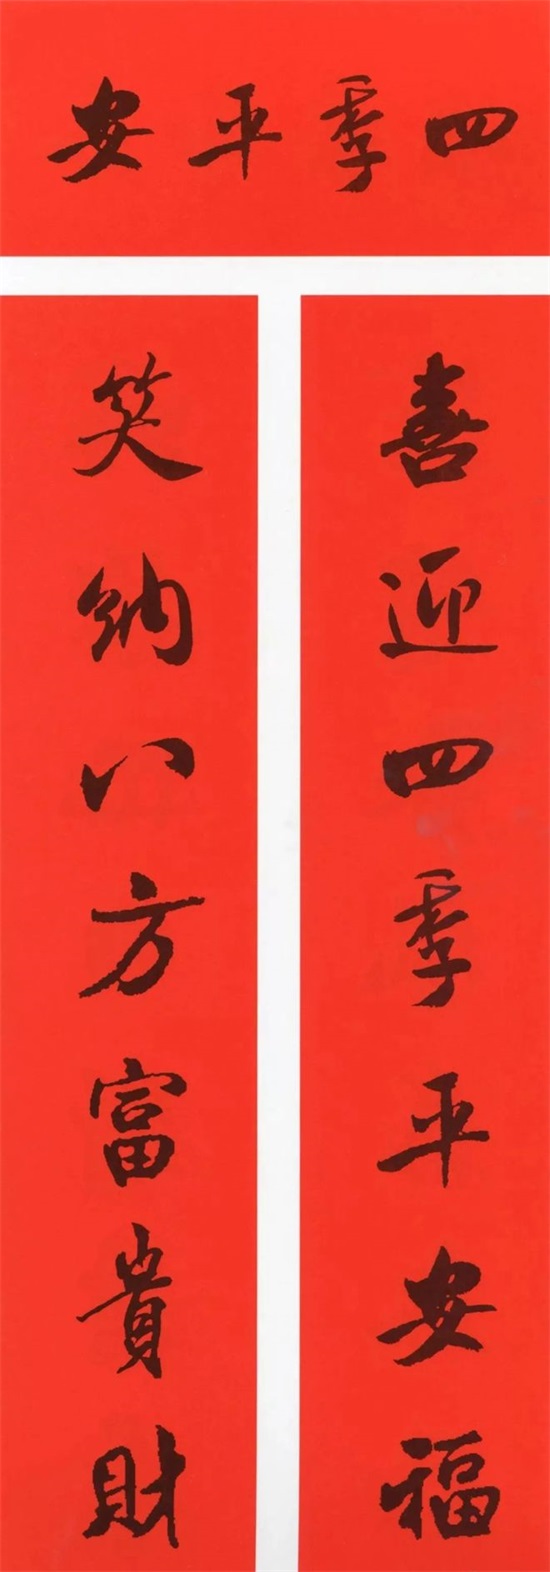 四季平安
喜迎四季平安福
笑纳八方富貴財